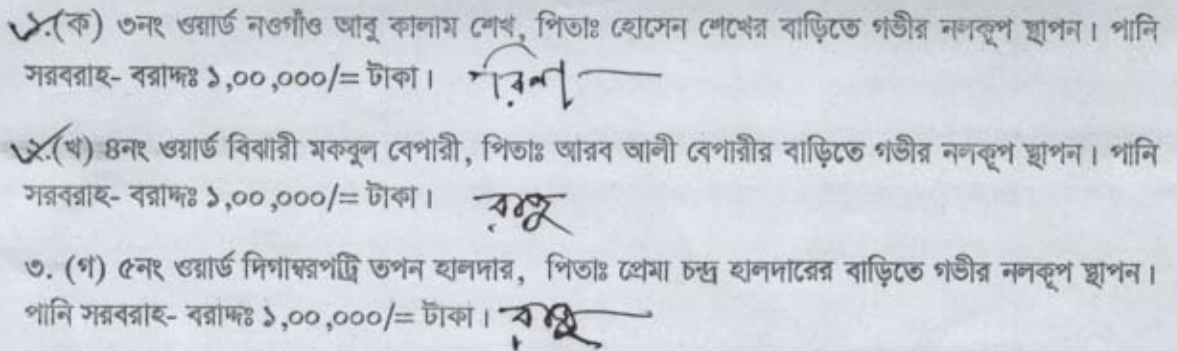 ১.(ক) ৩নং ওয়ার্ড নওগাঁও আবু কালাম শেখ, পিতাঃ হোসেন শেখের বাড়িতে গভীর নলকূপ স্থাপন। পানি
সরবরাহ- বরাদ্দঃ ১,০০,০০০/= টাকা।
২.(খ) ৪নং ওয়ার্ড বিবারী মকবুল বেপারী, পিতাঃ আরব আলী বেপারীর বাড়িতে গভীর নলকূপ স্থাপন। পানি
সরবরাহ- বরাদ্দঃ ১,০০,০০০/= টাকা।
৩. (গ) ৫নং ওয়ার্ড দিগাম্বরপট্টি তপন হালদার, পিতাঃ প্রেমা চন্দ্র হালদারের বাড়িতে গভীর নলকূপ স্থাপন।
পানি সরবরাহ- বরাদ্দঃ ১,০০,০০০/= টাকা।